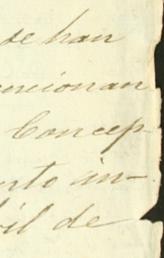 se han
mencionan
Concep-
ento in-
bil de